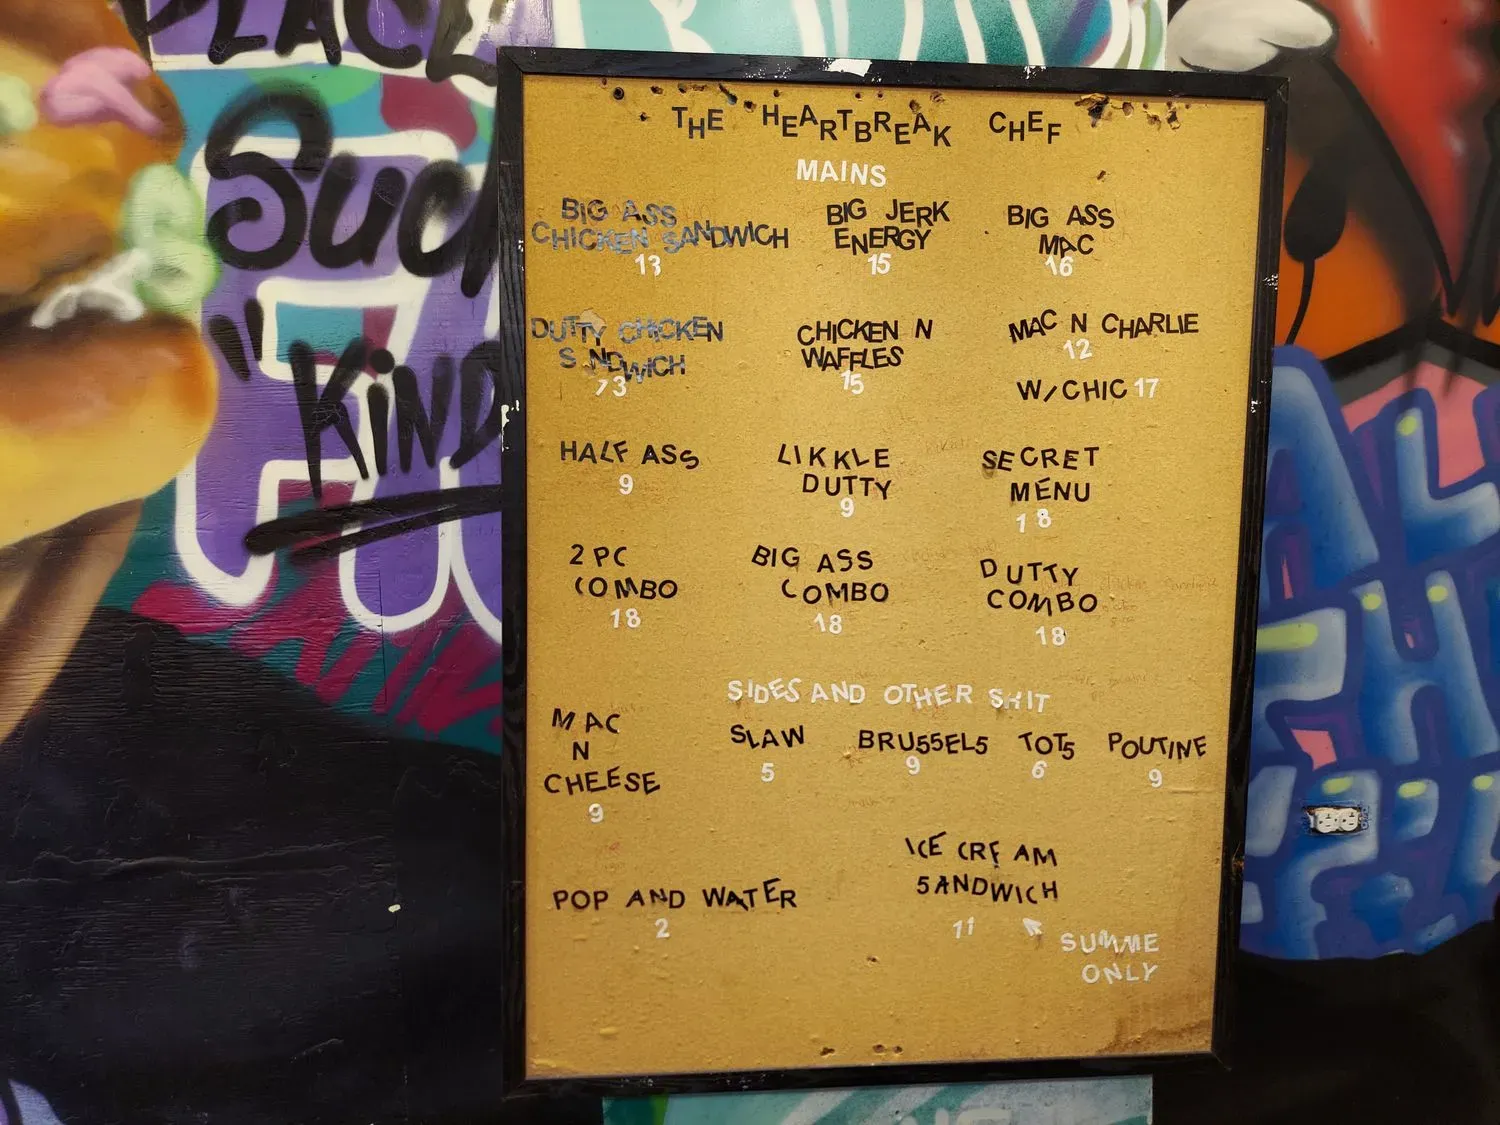 PLACE
Such
"KIND
THE HEARTBREAK CHEF
MAINS
BIG ASS
CHICKEN SANDWICH
13
BIG JERK
ENERGY
15
BIG ASS
MAC
16
DUTTY CHICKEN
S NDWICH
13
CHICKEN N
WAFFLES
15
MAC N CHARLIE
12
W/CHIC 17
HALF ASS
9
LIKKLE
DUTTY
9
SECRET
MENU
18
2 PC
COMBO
18
BIG ASS
COMBO
18
DUTTY
COMBO
18
SIDES AND OTHER SHIT
MAC
N
CHEESE
9
SLAW
5
BRUSSELS
9
TOTS
6
POUTINE
9
POP AND WATER
2
ICE CREAM
SANDWICH
11
SUMME
ONLY